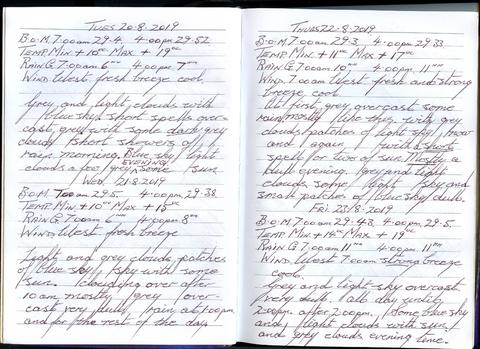 TUES 20-8-2019
B.O.M. 7.00am 29.4. 4.00pm 29.52.
TEMP MIN +10°C MAX. +19°C
RAIN G. 7.00am 6mm 4.00pm 7mm
WIND. West fresh breeze cool.
Grey and light clouds with
blue sky, short spells over-
cast, grey with some dark grey
clouds, short showers of
rain morning. Blue sky, light
EVENING
clouds a few grey, some sun.
Wed. 21-8-2019
B.O.M. 7.00am 4.00pm 29.38.
TEMP MIN +10°C MAX +
RAIN G. 7.00am 6mm 4.00pm 8mm
WIND. West fresh breeze
Light and grey clouds patches
of blue sky, sky with some
sun. clouding over after
10am mostly grey over-
cast very dull, rain at 1.00pm
and for the rest of the day.
THURS 22-8-2019
B.O.M. 7.00am 29.3. 4.00pm 29.33.
TEMP MIN +11°C MAX +17°C
RAIN G. 7.00am 10mm 4.00pm 11mm
WIND. 7.00am West fresh and strong
breeze cool
At first, grey, overcast some
rain, mostly like this, with grey
clouds, patches of light sky, now
and again, with a short
spell or two of sun. Mostly a
dull evening, grey and light
clouds, some light sky and
small patches of blue sky, dull.
Fri. 23-8-2019
B.O.M. 7.00am 29.48. 4.00pm 29.5.
TEMP. MIN +14°C MAX + 19°C
RAIN G. 7.00am 11mm 4.00pm 11mm
WIND. West 7.00am strong breeze
cool.
Grey and light sky overcast
very dull. all day until
2.00pm. after 2.00pm, some blue sky
and light clouds with sun,
and grey clouds evening time.